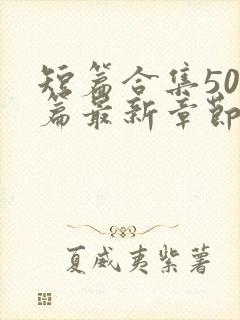 短篇合集50
篇最新章節
夏威夷紫薯